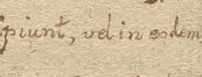 piunt, vel in eodem